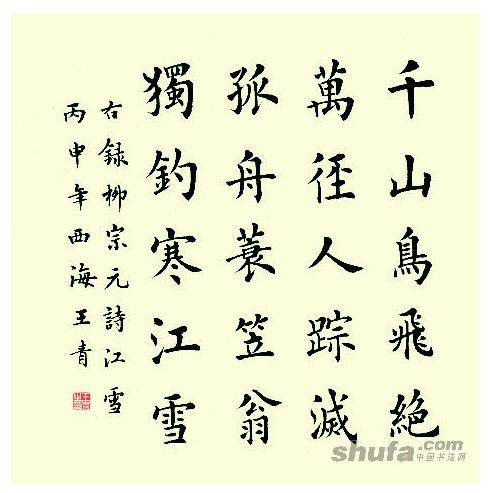 千山鳥飛絶
萬徑人踪滅
孤舟蓑笠翁
獨釣寒江雪
右録柳宗元詩江雪
丙申年西海王青
shufa.com
中国书法网